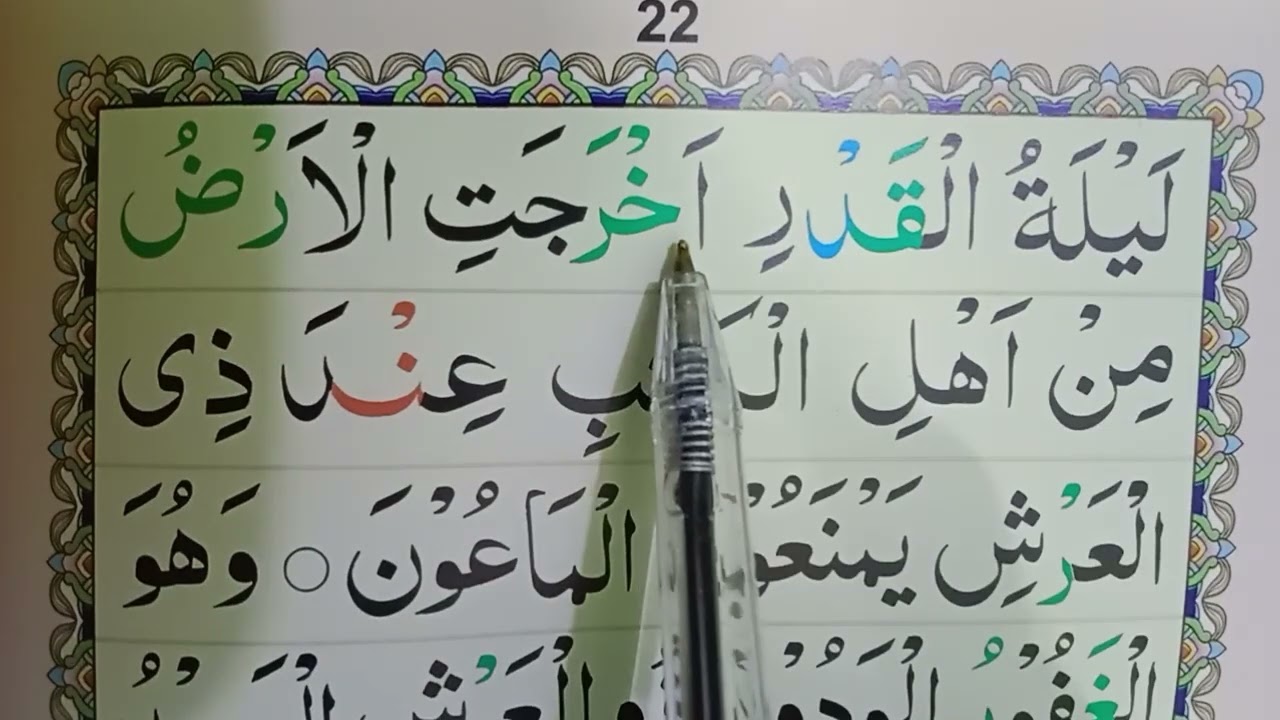 22
لَيْلَةُ الْقَدْرِ اَخْرَجَتِ الْاَرْضُ
مِنْ اَهْلِ عِنْدَ ذِى
الْعَرْشِ الْمَاعُوْنَ ○ وَهُوَ
الْغَفُوْرُ الْعَرْشِ